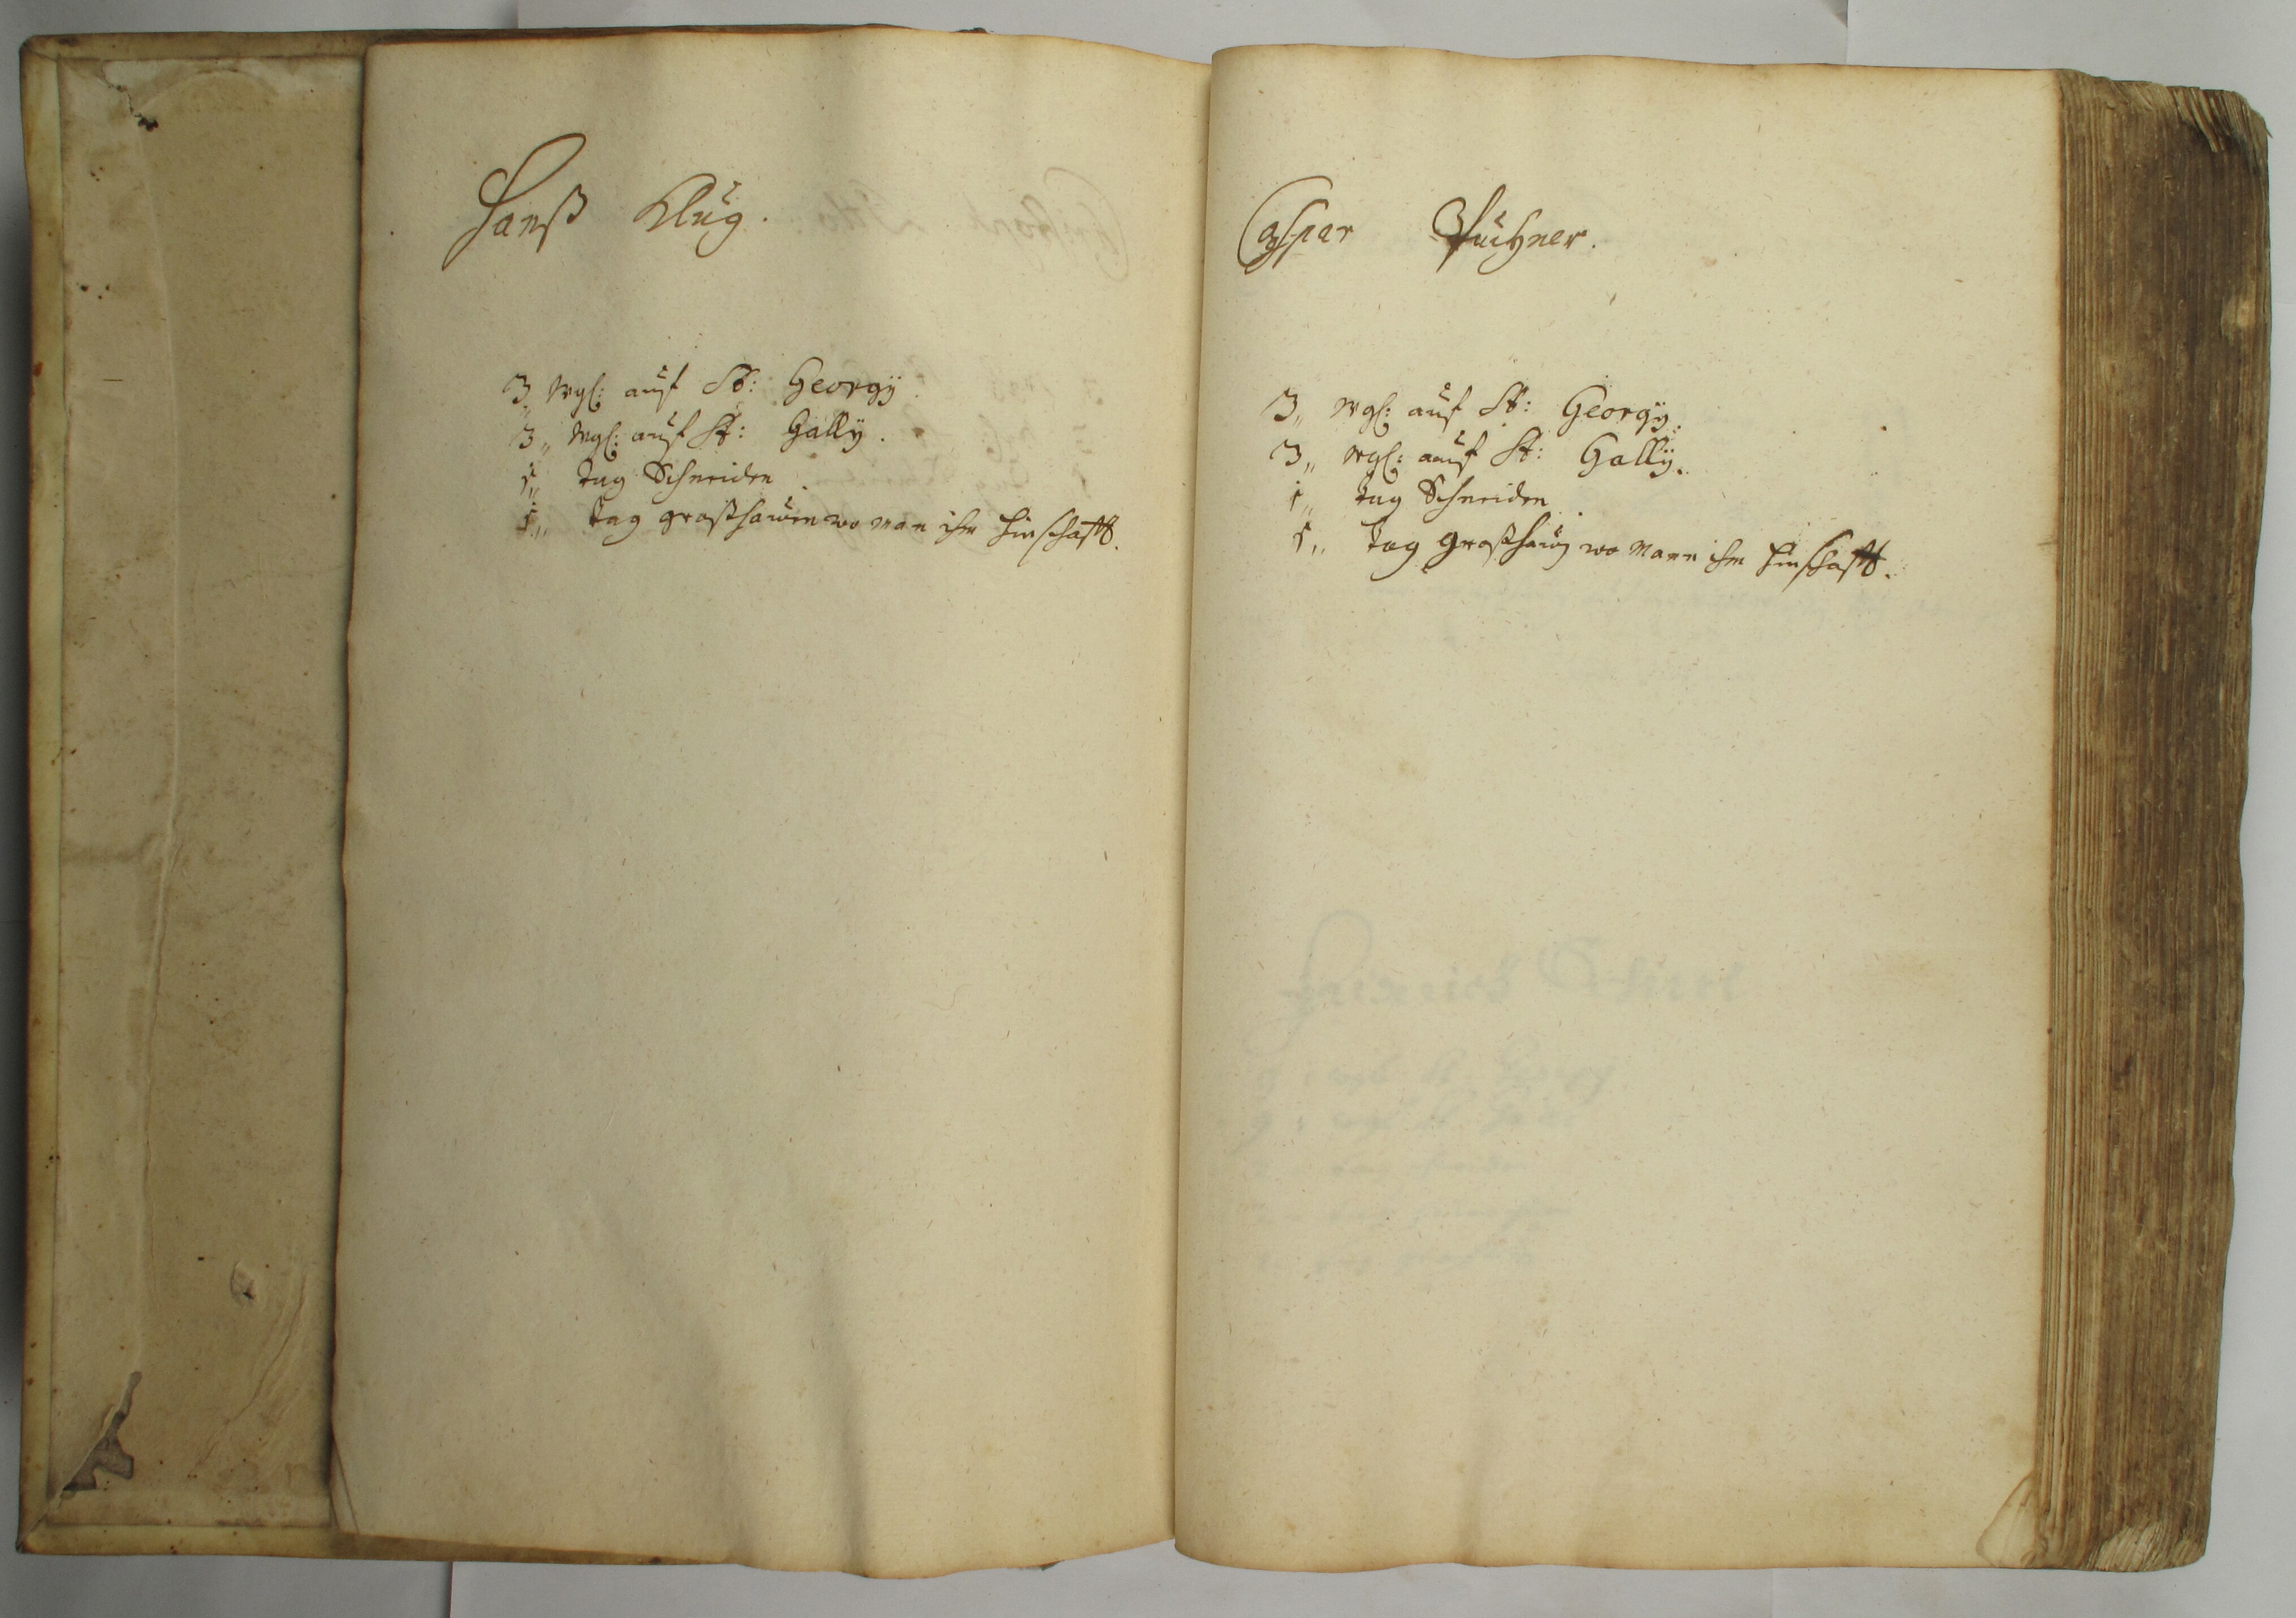 Hanß Klug.
3,, wgl: auf St: Georgÿ.
3,, wgl: auf St: Gallÿ.
1,, tag Schneiden.
1,, tag graßhauen wo man ihn hinschafft.
Caspar
3,, wgl: auf St: Georgÿ.
3,, wgl: auf St: Gallÿ.
1,, tag Schneiden.
1,, tag wo mann ihn hinschafft.